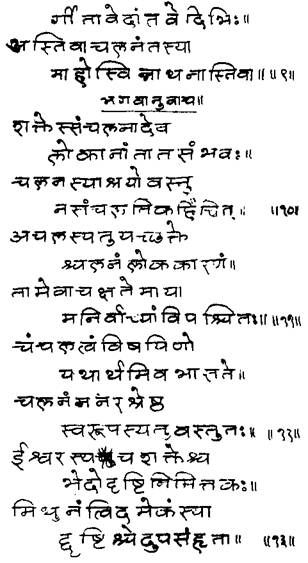 र्गीतावेदांतवेदिभिः॥
अस्तिवाचलनंतस्या
माहोस्विन्नाथनास्तिवा॥॥९॥
भगवानुवाच॥
शक्तेस्संचलनादेव
लोकानांतातसंभवः॥
चलनस्याश्रयोवस्तु
नसंचलतिकर्हिचित्॥ ॥१०॥
अचलस्यतुयच्छक्ते
श्चलनंलोककारणं॥
तामेवाचक्षतेमाया
मनिर्वाच्यांविपश्चितः॥॥११॥
चंचलत्वंविषयिणो
यथार्थमिवभासते॥
चलनंननरश्रेष्ठ
स्वरूपस्यतुवस्तुतः॥॥१२॥
ईश्वरस्यचशक्तेश्च
भेदोदृष्टिनिमित्तकः॥
मिथुनंत्विदमेकंस्या
द्दृष्टिश्चेदुपसंहृता॥ ॥१३॥